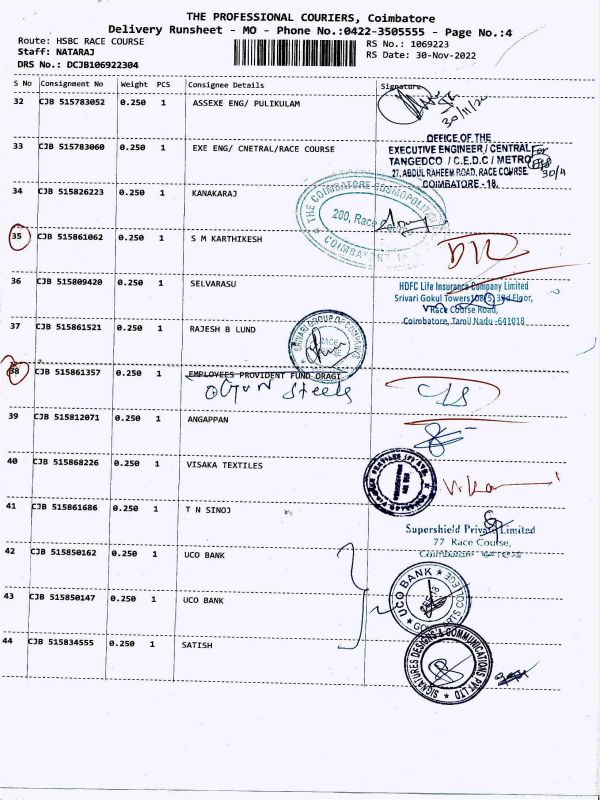 THE PROFESSIONAL COURIERS, Coimbatore
Delivery Runsheet - MO - Phone No.:0422-3505555 - Page No.:4
Route: HSBC RACE COURSE
RS No.: 1069223
Staff: NATARAJ
RS Date: 30-Nov-2022
DRS No.: DCJB106922304
S No Consignment No Weight PCS Consignee Details Signature
32 CJB 515783052 0.250 1 ASSEXE ENG/ PULIKULAM
30/11/22
33 CJB 515783060 0.250 1 EXE ENG/ CNETRAL/RACE COURSE
OFFICE OF THE
EXECUTIVE ENGINEER / CENTRAL
TANGEDCO / C.E.D.C / METRO
27, ABDUL RAHEEM ROAD, RACE COURSE
COIMBATORE - 18.
For
30/11
34 CJB 515826223 0.250 1 KANAKARAJ
THE COIMBATORE COSMOPOLITAN
200, Race
COIMBATORE
35 CJB 515861062 0.250 1 S M KARTHIKESH
36 CJB 515809420 0.250 1 SELVARASU
HDFC Life Insurance Company Limited
Srivari Gokul Towers, 3rd Floor,
Race Course Road,
Coimbatore, Tamil Nadu - 641018
37 CJB 515861521 0.250 1 RAJESH B LUND
SRIVARI GROUP OF COMPANIES
RACE
38 CJB 515861357 0.250 1 EMPLOYEES PROVIDENT FUND ORAGI
Steels
39 CJB 515812071 0.250 1 ANGAPPAN
40 CJB 515868226 0.250 1 VISAKA TEXTILES
41 CJB 515861686 1 0.250 T N SINOJ
Supershield Private Limited
77 Race Course,
Coimbatore
42 CJB 515850162 0.250 1 UCO BANK
43 CJB 515850147 0.250 1 UCO BANK
UCO BANK
44 CJB 515834555 0.250 1 SATISH
SIGNATURES DESIGNS & COMMUNICATIONS PVT LTD